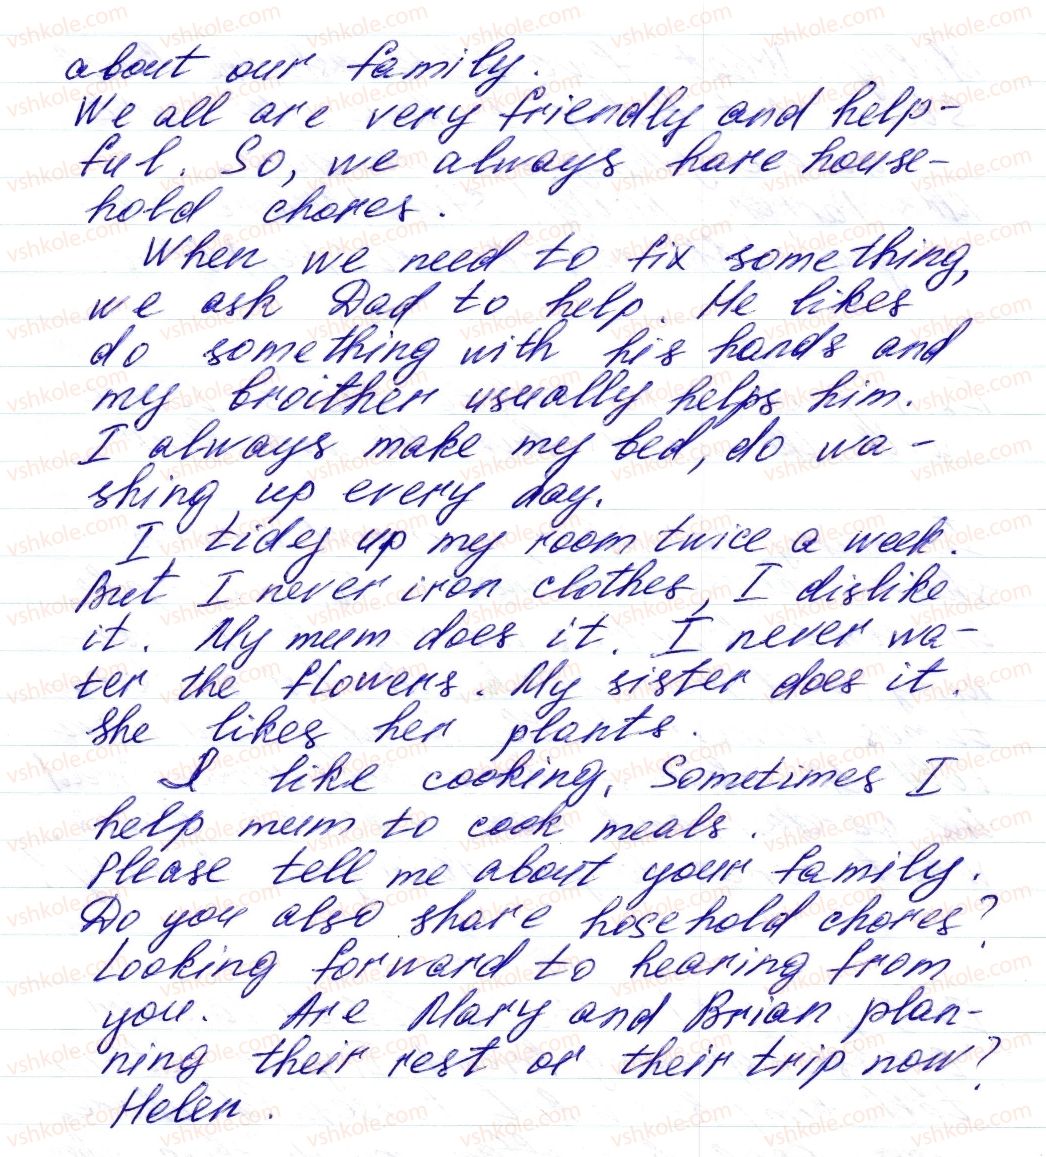 about our family.
We all are very friendly and help-
ful. So, we always hare house-
hold chores.
When we need to fix something,
we ask Dad to help. He likes
do something with his hands and
my broither usually helps him.
I always make my bed, do wa-
shing up every day.
I tidey up my room twice a week.
But I never iron clothes, I dislike
it. My mum does it. I never wa-
ter the flowers. My sister does it.
She likes her plants.
I like cooking. Sometimes I
help mum to cook meals.
Please tell me about your family.
Do you also share hosehold chores?
Looking forward to hearing from
you. Are Mary and Brian plan-
ning their rest or their trip now?
Helen.